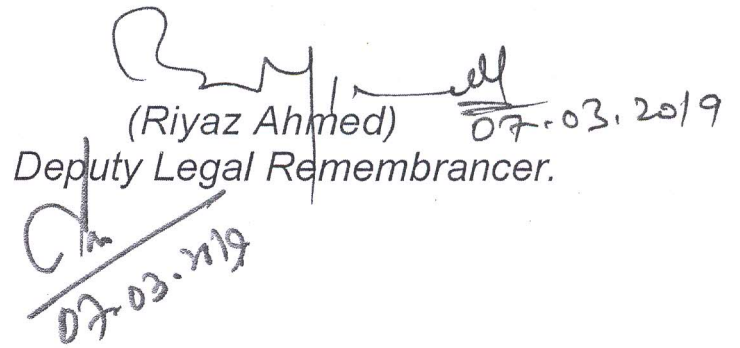 (Riyaz Ahmed)
07.03.2019
Deputy Legal Remembrancer.
07.03.2019